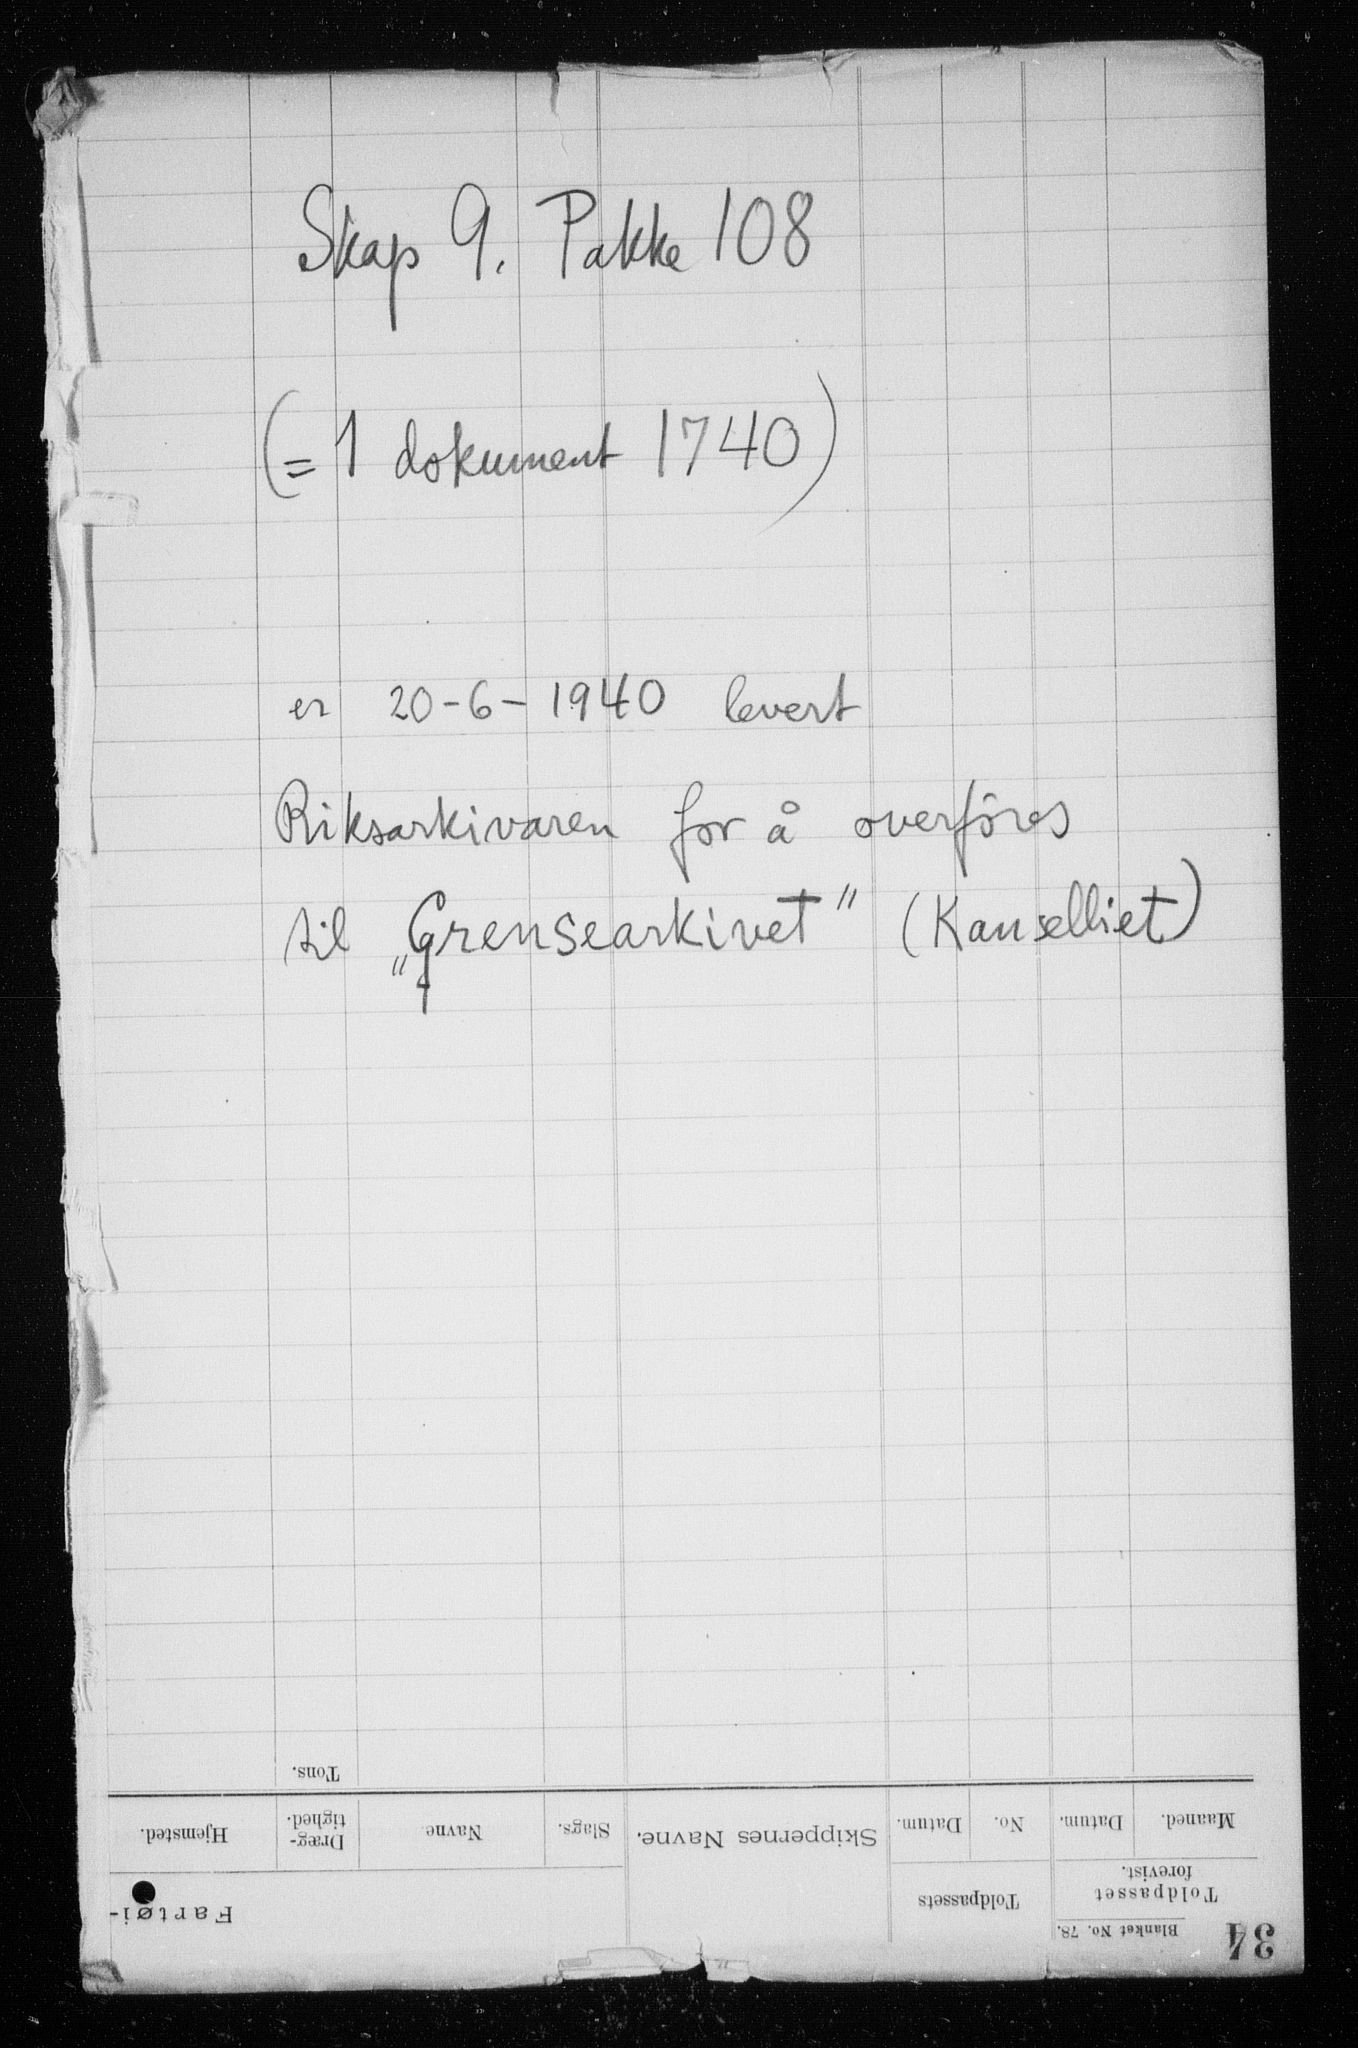 Skap 9. Pakke 108
(= 1 dokument 1740)
er 20-6-1940 levert
Riksarkivaren for å overföres
til „Grensearkivet" (Kanselliet)
34
Blanket No. 78.
Toldpasset
forevist.
Maaned.
Datum.
Toldpassets
No.
Datum.
Skippernes Navne.
Fartøi-
Slags.
Navne.
Dræg-
tighed.
Tons.
Hjemsted.